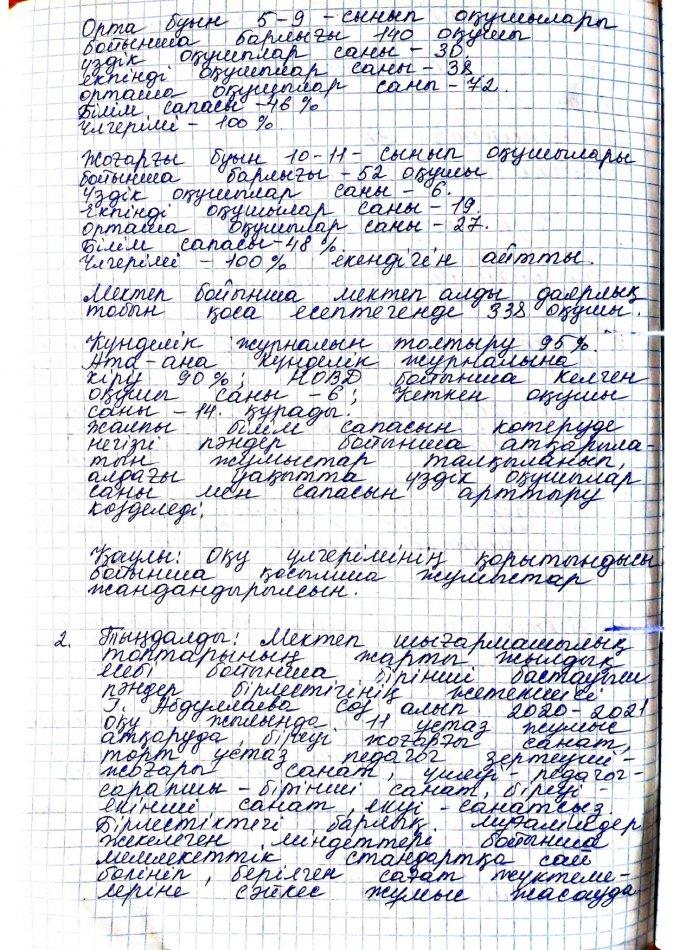 Орта буын 5-9 - сынып оқушылары
бойынша барлығы 140 оқушы
үздік оқушылар саны - 30.
екпінді оқушылар саны - 38
орташа оқушылар саны - 72.
Білім сапасы - 46 %
Үлгерімі - 100 %.
Жоғарғы буын 10-11 - сынып оқушылары
бойынша барлығы - 52 оқушы
Үздік оқушылар саны - 6.
Екпінді оқушылар саны - 19.
орташа оқушылар саны - 27.
Білім сапасы - 48 %
Үлгерімі - 100 % екендігін айтты.
Мектеп бойынша мектеп алды даярлық
тобын қоса есептегенде 338 оқушы.
Күнделік журналын толтыру 95 %.
Ата-ана күнделік журналына
кіру 90 %; НОБД бойынша келген
оқушы саны - 6; Кеткен оқушы
саны - 14. құрады.
жалпы білім сапасын көтеруде
негізгі пәндер бойынша атқарыла-
тын жұмыстар талқыланып,
алдағы уақытта үздік оқушылар
саны мен сапасын арттыру
көзделеді.
Қаулы: Оқу үлгерімінің қорытындысы
бойынша қосымша жұмыстар
жандандырылсын.
2. Тыңдалды: Мектеп шығармашылық
топтарының жарты жылдық
есебі бойынша бірінші бастауыш
пәндер бірлестігінің жетекшісі
Г. Абдуллаева сөз алып 2020-2021
оқу жылында 11 ұстаз жұмыс
атқаруда, біреуі жоғарғы санат,
төрт ұстаз педагог зерттеуші -
жоғары санат, үшеуі - педагог-
сарапшы - бірінші санат, біреуі -
екінші санат, екуі - санатсыз
Бірлестіктегі барлық мұғалімдер
жекелеген міндеттері бойынша
мемлекеттік стандартқа сай
бөлініп, берілген сағат жүктеме-
леріне сәйкес жұмыс жасауда